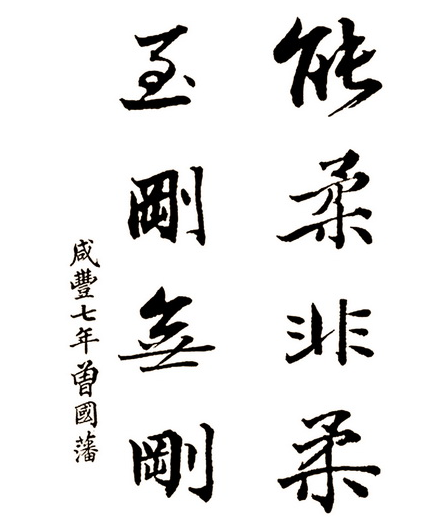 能柔非柔
至剛無剛
咸豐七年曾國藩